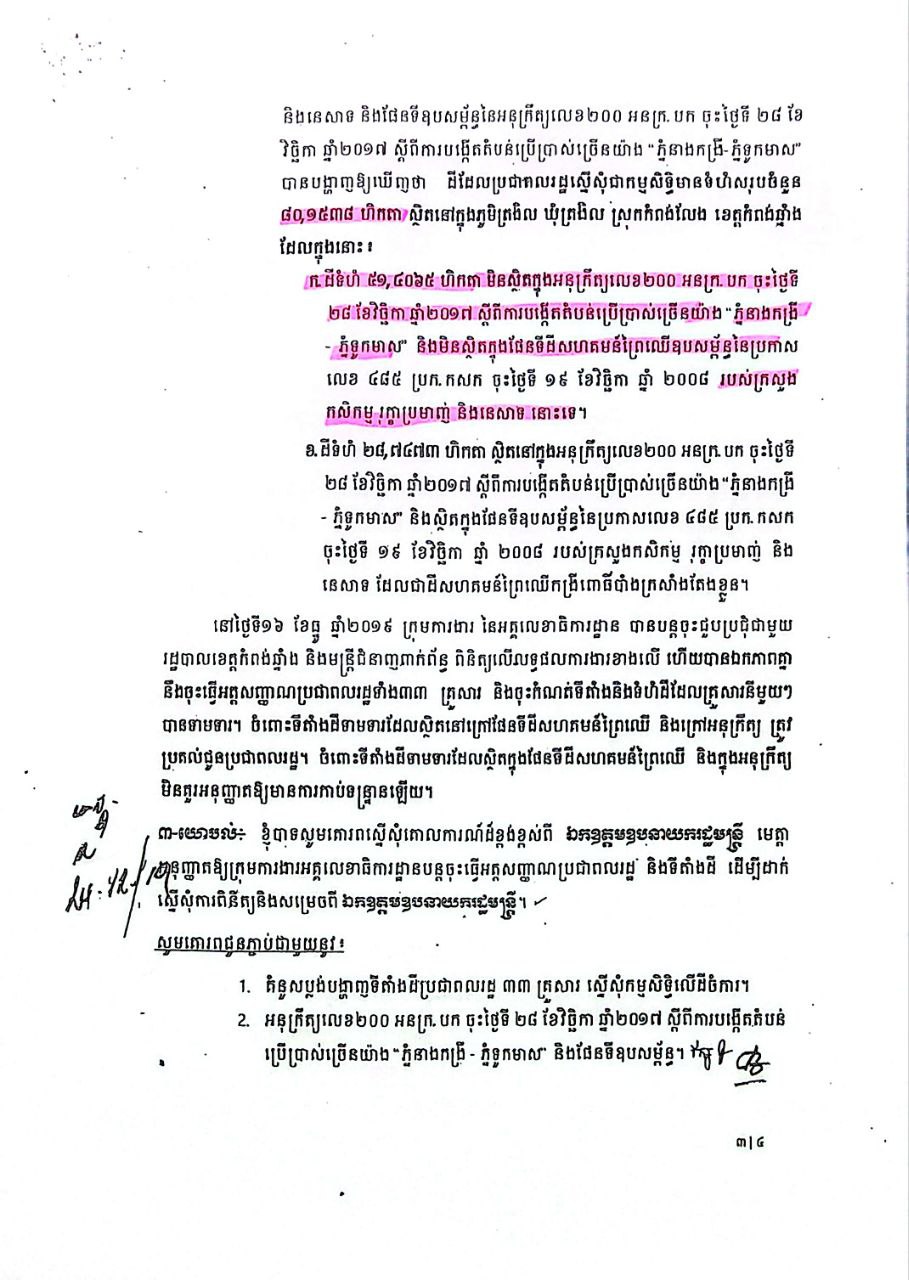 និងនេសាទ និងផែនទីឧបសម្ព័ន្ធនៃអនុក្រឹត្យលេខ២០០ អនក្រ.បក ចុះថ្ងៃទី ២៨ ខែ
វិច្ឆិកា ឆ្នាំ២០១៧ ស្តីពីការបង្កើតតំបន់ប្រើប្រាស់ច្រើនយ៉ាង “ភ្នំនាងកង្រី- ភ្នំទូកមាស”
បានបង្ហាញឱ្យឃើញថា ដីដែលប្រជាពលរដ្ឋស្នើសុំជាកម្មសិទ្ធិមានទំហំសរុបចំនួន
៨០,១៥៣៨ ហិកតា ស្ថិតនៅក្នុងភូមិត្រងិល ឃុំត្រងិល ស្រុកកំពង់លែង ខេត្តកំពង់ឆ្នាំង
ដែលក្នុងនោះ៖
ក.ដីទំហំ ៥១,៤០៦៥ ហិកតា មិនស្ថិតក្នុងអនុក្រឹត្យលេខ២០០ អនក្រ.បក ចុះថ្ងៃទី
២៨ ខែវិច្ឆិកា ឆ្នាំ២០១៧ ស្តីពីការបង្កើតតំបន់ប្រើប្រាស់ច្រើនយ៉ាង “ភ្នំនាងកង្រី
- ភ្នំទូកមាស” និងមិនស្ថិតក្នុងផែនទីដីសហគមន៍ព្រៃឈើឧបសម្ព័ន្ធនៃប្រកាស
លេខ ៤៨៥ ប្រក.កសក ចុះថ្ងៃទី ១៩ ខែវិច្ឆិកា ឆ្នាំ ២០០៨ របស់ក្រសួង
កសិកម្ម រុក្ខាប្រមាញ់ និងនេសាទ នោះទេ។
ខ.ដីទំហំ ២៨,៧៤៧៣ ហិកតា ស្ថិតនៅក្នុងអនុក្រឹត្យលេខ២០០ អនក្រ.បក ចុះថ្ងៃទី
២៨ ខែវិច្ឆិកា ឆ្នាំ២០១៧ ស្តីពីការបង្កើតតំបន់ប្រើប្រាស់ច្រើនយ៉ាង “ភ្នំនាងកង្រី
- ភ្នំទូកមាស” និងស្ថិតក្នុងផែនទីឧបសម្ព័ន្ធនៃប្រកាសលេខ ៤៨៥ ប្រក.កសក
ចុះថ្ងៃទី ១៩ ខែវិច្ឆិកា ឆ្នាំ ២០០៨ របស់ក្រសួងកសិកម្ម រុក្ខាប្រមាញ់ និង
នេសាទ ដែលជាដីសហគមន៍ព្រៃឈើកង្រីពោធិ៍បាំងក្រសាំងតែងខ្លួន។
នៅថ្ងៃទី១៦ ខែធ្នូ ឆ្នាំ២០១៩ ក្រុមការងារ នៃអគ្គលេខាធិការដ្ឋាន បានបន្តចុះជួបប្រជុំជាមួយ
រដ្ឋបាលខេត្តកំពង់ឆ្នាំង និងមន្ត្រីជំនាញពាក់ព័ន្ធ ពិនិត្យលើលទ្ធផលការងារខាងលើ ហើយបានឯកភាពគ្នា
នឹងចុះធ្វើអត្តសញ្ញាណប្រជាពលរដ្ឋទាំង៣៣ គ្រួសារ និងចុះកំណត់ទីតាំងនិងទំហំដីដែលគ្រួសារនីមួយៗ
បានទាមទារ។ ចំពោះទីតាំងដីទាមទារដែលស្ថិតនៅក្រៅផែនទីដីសហគមន៍ព្រៃឈើ និងក្រៅអនុក្រឹត្យ ត្រូវ
ប្រគល់ជូនប្រជាពលរដ្ឋ។ ចំពោះទីតាំងដីទាមទារដែលស្ថិតក្នុងផែនទីដីសហគមន៍ព្រៃឈើ និងក្នុងអនុក្រឹត្យ
មិនគួរអនុញ្ញាតឱ្យមានការកាប់ទន្ទ្រានឡើយ។
៣-យោបល់៖ ខ្ញុំបាទសូមគោរពស្នើសុំគោលការណ៍ដ៏ខ្ពង់ខ្ពស់ពី ឯកឧត្តមឧបនាយករដ្ឋមន្ត្រី មេត្តា
អនុញ្ញាតឱ្យក្រុមការងារអគ្គលេខាធិការដ្ឋានបន្តចុះធ្វើអត្តសញ្ញាណប្រជាពលរដ្ឋ និងទីតាំងដី ដើម្បីដាក់
ស្នើសុំការពិនិត្យនិងសម្រេចពី ឯកឧត្តមឧបនាយករដ្ឋមន្ត្រី។
សូមគោរពជូនភ្ជាប់ជាមួយនូវ៖
1. គំនូសប្លង់បង្ហាញទីតាំងដីប្រជាពលរដ្ឋ ៣៣ គ្រួសារ ស្នើសុំកម្មសិទ្ធិលើដីចំការ។
2. អនុក្រឹត្យលេខ២០០ អនក្រ.បក ចុះថ្ងៃទី ២៨ ខែវិច្ឆិកា ឆ្នាំ២០១៧ ស្តីពីការបង្កើតតំបន់
ប្រើប្រាស់ច្រើនយ៉ាង “ភ្នំនាងកង្រី - ភ្នំទូកមាស” និងផែនទីឧបសម្ព័ន្ធ។
៣|៤